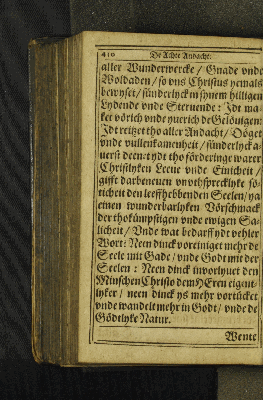 410 De Achte Andacht.
aller Wunderwercke / Gnade vnde
Woldaden / so vns Christus yemals
bewyset / sünderlyck in synem hilligen
Lydende vnde Steruende : Idt ma-
ket vörich vnde yuerich de Gelöuigen:
Idt reitzet tho aller Andacht / Döget
vnde vullenkamenheit / sünderlyck a-
uerst deent ydt tho förderinge warer
Christlyken Leeue vnde Einicheit /
gifft darbeneuen vnvthsprecklyke sö-
ticheit den leeffhebbenden Seelen / ya
einen wunderbarlyken Vörschmack
der thokümpstigen vnde ewigen Sa-
licheit / Vnde wat bedarff ydt vehler
Wort: Neen dinck voreiniget mehr de
Seele mit Gade / vnde Godt mit der
Seelen : Neen dinck inworlyuet den
Minschen Christo dem HEren eigent-
lyker / neen dinck ys mehr vortücket
vnde wandelt mehr in Godt / vnde de
Gödtlyke Natur.
Wente